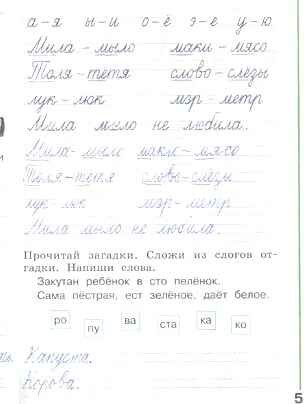 а-я ы-и о-ё э-е у-ю
Мила - мыло маки - мясо
Толя - тётя слово - слёзы
лук - люк мэр - метр
Мила мыло не любила.
Мила - мыло маки - мясо
Толя - тетя слово - слёзы
лук - люк мэр - метр
Мила мыло не любила.
Прочитай загадки. Сложи из слогов от-
гадки. Напиши слова.
Закутан ребёнок в сто пелёнок.
Сама пёстрая, ест зелёное, даёт белое.
ро пу ва ста ка ко
Капуста.
Корова.
5